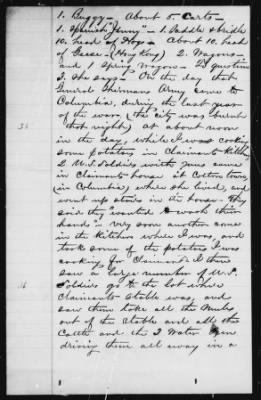 1. Buggy - About 5. Carts -
1. Spanish Jenny - 1. Saddle & bridle
10. head of Hogs - About 10. head
of Geese - (Hong Kong) 2. Wagons -
and 1 Spring Wagon - 2d question
3. She says - On the day that
General Shermans Army came to
Columbia, during the last year
of the war, (the city was burnt
that night) at about noon
in the day, while I was cooking
some potatoes in Claimants Kitchen
2 U.S. Soldiers with guns came
in Claimants house at Cotton town,
(in Columbia) where she lived, and
went up stairs in the house - they
said they wanted to wash their
hands - very soon another came
in the Kitchen where I was, and
took some of the potatoes I was
cooking for Claimant. I then
saw a large number of U.S.
Soldiers go to the lot where
Claimants stable was, and
saw them take all the Mules
out of the Stable and all the
Cattle and the 2 Water Oxen
driving them all away in a